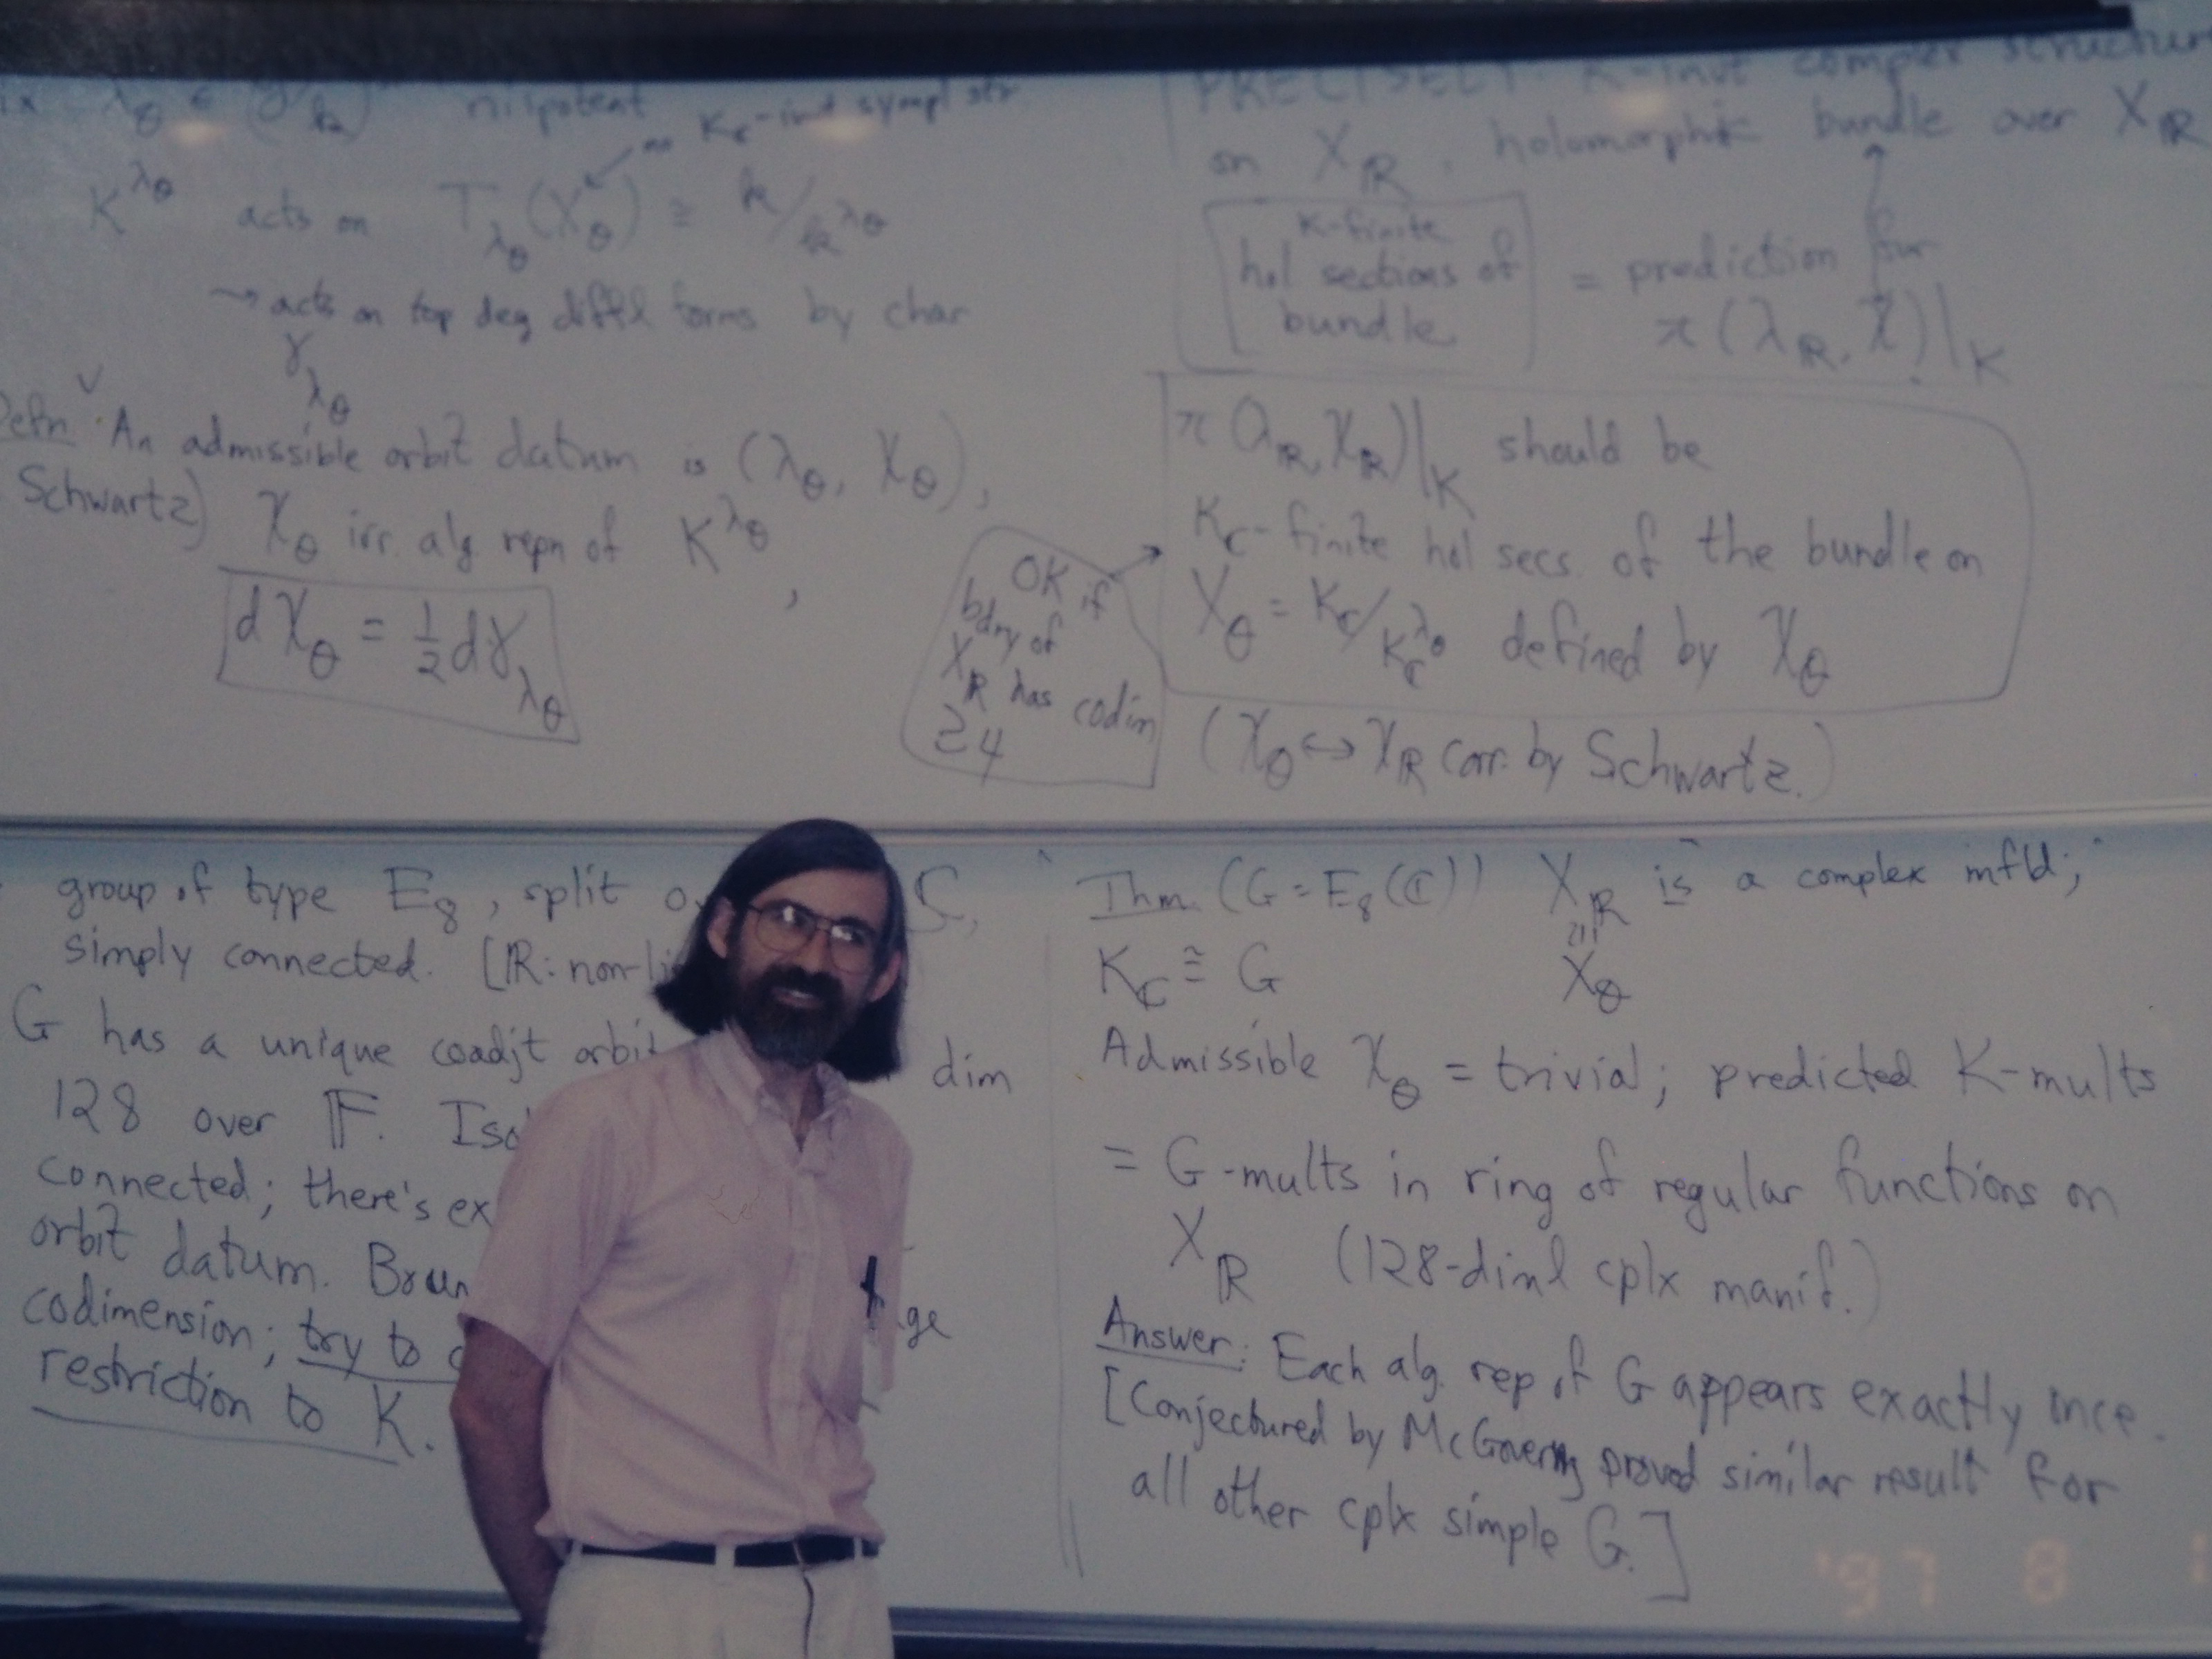 λ_θ ∈ (g/k)* nilpotent
K_C-invt sympl str
K^{λ_θ} acts on T_{λ_θ}(X_θ) ≅ k/k^{λ_θ}
→ acts on top deg diff'l forms by char
γ_{λ_θ}
Defn: An admissible orbit datum is (λ_θ, χ_θ),
Schwartz) χ_θ irr. alg repn of K^{λ_θ},
dχ_θ = ½ dγ_{λ_θ}
PRECISELY: K-invt complex structure
on X_ℝ, holomorphic bundle over X_ℝ
K-finite
hol sections of
bundle
= prediction for
π(λ_ℝ, χ)|_K
π(λ_ℝ, χ_ℝ)|_K should be
K_C-finite hol secs. of the bundle on
X_θ = K_C/K_C^{λ_θ} defined by χ_θ
OK if
bdry of
X_ℝ has codim
≥4
(χ_θ ↔ χ_ℝ corr. by Schwartz.)
group of type E_8, split C,
simply connected. [ℝ: non-li
G has a unique coadjt orbit dim
128 over 𝔽.
connected; there's ex
orbit datum. Boun ge
codimension; try to
restriction to K.
Thm (G = E_8(ℂ)) X_ℝ is a complex mfld;
≅
K_C ≅ G X_θ
Admissible χ_θ = trivial; predicted K-mults
= G-mults in ring of regular functions on
X_ℝ (128-diml cplx manif.)
Answer: Each alg. rep of G appears exactly once.
[Conjectured by McGovern, proved similar result for
all other cplx simple G.]
'97 8 1